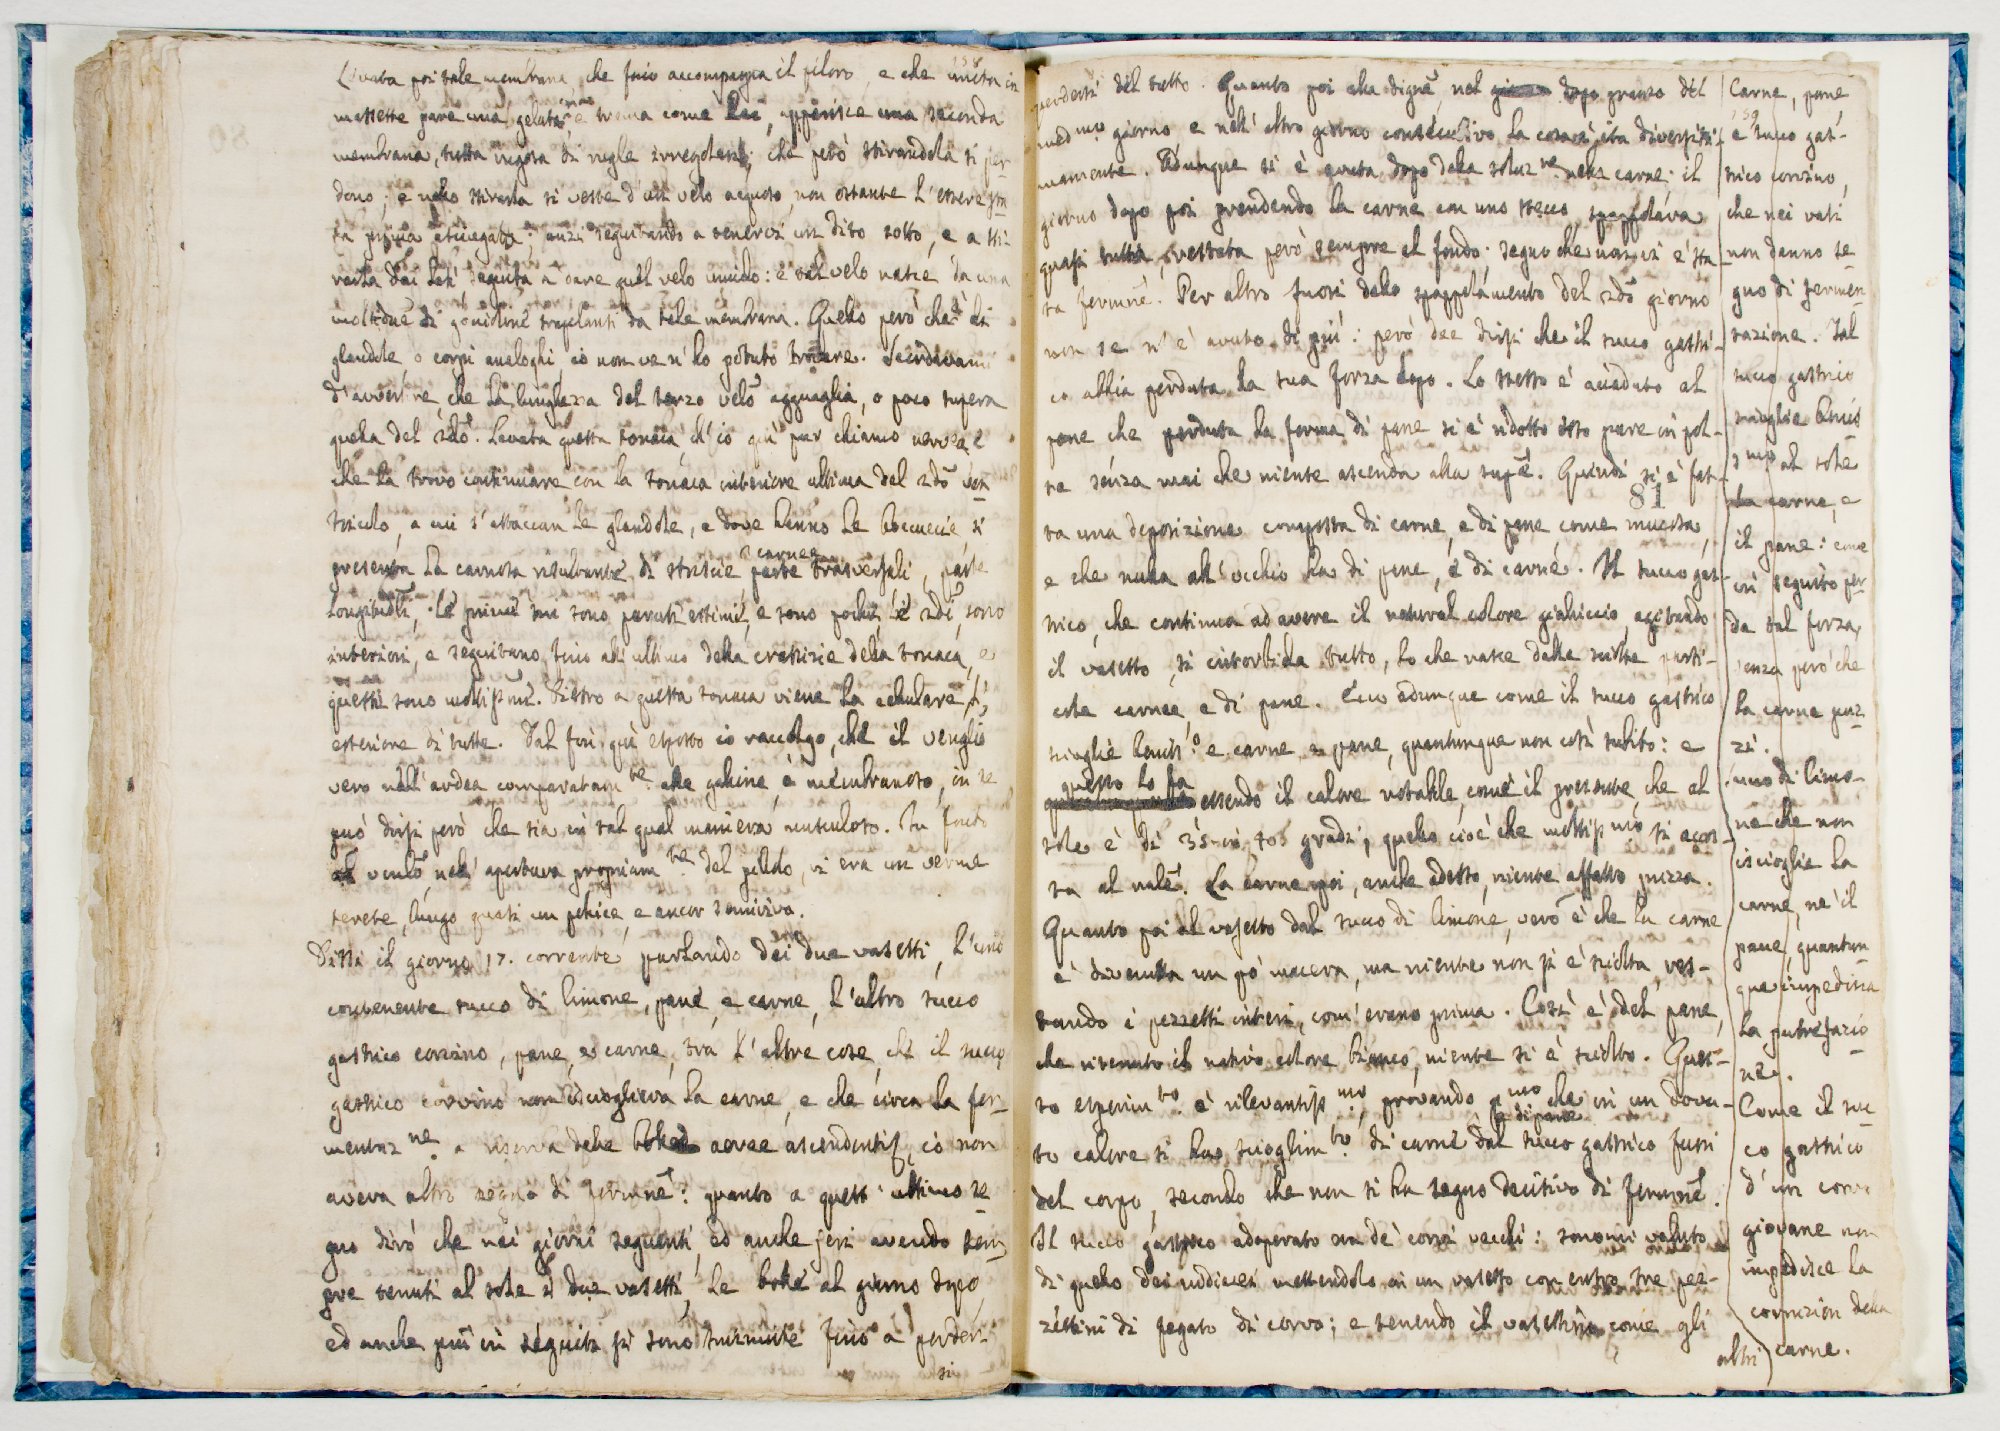 Levata poi tale membrana, che fino accompagna il piloro, e che unita in
massette pare una gelatina, e trema come lei, apparisce una seconda
membrana, tutta rugosa di rughe irregolari; che però stirandola si per-
dono; e nello stirarla si veste d'un velo acquoso, non ostante l'essere sta-
ta prima asciugata: anzi seguitando a tenervi un dito sotto, e a sti-
rarla dai lati seguita a dare quel velo umido: e tal velo nasce da una
di goccioline trapelanti da tale membrana. Quello però che è di
glandole, o corpi analoghi, io non ve n'ho potuto trovare.
d'avvertire, che la lunghezza del terzo velo agguaglia, o poco supera
quella del 2do. Levata questa tonaca, ch'io qui pur chiamo nervea, e
che la trovo continuare con la tonaca interiore ultima del 2do ven-
tricolo, a cui s'attaccan le glandole, e dove hanno le boccuccie si
presenta la carnosa risultante di striscie carnee parte trasversali, parte
longitudli. Le prime mi sono parute estime, e sono poche, le 2de sono
interiori, e seguitano fino all'ultimo della crassizie della tonaca, e
questi sono moltissme. Dietro a questa tonaca viene la cellulare, l'
esteriore di tutte. Dal fin qui esposto io raccolgo, che il
vero nell'ardea comparatamte alle galline, è membranoso, in se
può dirsi però che sia in tal qual maniera musculoso. In fondo
al ventlo, nell'apertura propriamte del piloro, vi era un verme
terete, lungo quasi un pollice, e ancor semivivo.
Dissi il giorno 17. corrente parlando dei due vasetti, l'uno
contenente succo di limone, pane, e carne, l'altro succo
gastrico corvino, pane, e carne, tra l'altre cose, che il succo
gastrico corvino non iscioglieva la carne, e che circa la fer-
mentazne a riserva delle bolle aeree ascendenti, io non
aveva altro segno di fermne: quanto a questo ultimo se-
gno dirò che nei giorni seguenti, ed anche jeri avendo sem-
pre tenuti al sole i due vasetti, le bolle al giorno dopo,
ed anche più in seguito si sono sminuite fino a perder-
si
158
perdersi del tutto. Quanto poi alla digne, nel dopo pranzo del
medmo giorno e nell'altro giorno consecutivo la cosa è ita diversissi-
mamente. Adunque si è avuta dopo della soluzne nella carne; il
giorno dopo poi prendendo la carne con uno stecco, spappolava
quasi tutta, restata però sempre al fondo: segno che non vi è sta-
ta fermne. Per altro fuori dello spappolamento del 2do giorno
non se n'è avuto di più: però dee dirsi che il succo gastri-
co abbia perduta la sua forza dopo. Lo stesso è accaduto al
pane che perduta la forma di pane si è ridotto esso pure in pol-
te senza mai che niente ascenda alla supe. Quindi si è fat-
81
ta una deposizione composta di carne, e di pane come mucosa,
e che nulla all'occhio ha di pane, e di carne. Il succo gas-
trico, che continua ad avere il natural colore gialliccio, agitando
il vasetto, si intorbida tutto, lo che nasce dalle sciolte parti-
celle carnee, e di pane. Ecco adunque come il succo gastrico
scioglie benisso e carne e pane, quantunque non così subito: e
questo lo fa
essendo il calore notabile, come il presente, che al
sole è di 35 in 40 gradi; quello cioè che moltissmo si acos-
ta al nale. La carne poi, anche adesso, niente affatto puzza.
Quanto poi al vasetto dal succo di limone, vero è che la carne
è divenuta un pò macera, ma niente non si è sciolta, res-
tando i pezzetti interi, com'erano prima. Così è del pane,
che ritenuto il nativo colore bianco, niente si è sciolto. Ques-
to esperimto è rilevantissmo, provando pmo che in un dovu-
e di pane
to calore si ha scioglimto di carne dal succo gastrico fuori
del corpo, secondo che non si ha segno decisivo di fermne.
Il succo gastrico adoperato era de' corvi vecchi: sonomi valuto
di quello dei nidiacei mettendolo in un vasetto con entro tre pez-
zettini di fegato di corvo; e tenendo il vasettino come gli
altri
Carne, pane
159
e succo gas-
trico corvino,
che nei vasi
non danno se-
gno di fermen-
tazione. Tal
succo gastrico
scioglie benis-
smo al sole
la carne, e
il pane: come
in seguito per-
da tal forza,
senza però che
la carne puz-
zi.
di limo-
ne che non
iscioglie la
carne, nè il
pane, quantun-
que impedisca
la putrefazio-
ne.
Come il suc-
co gastrico
d'un corvo
giovane non
impedisce la
corruzion della
carne.